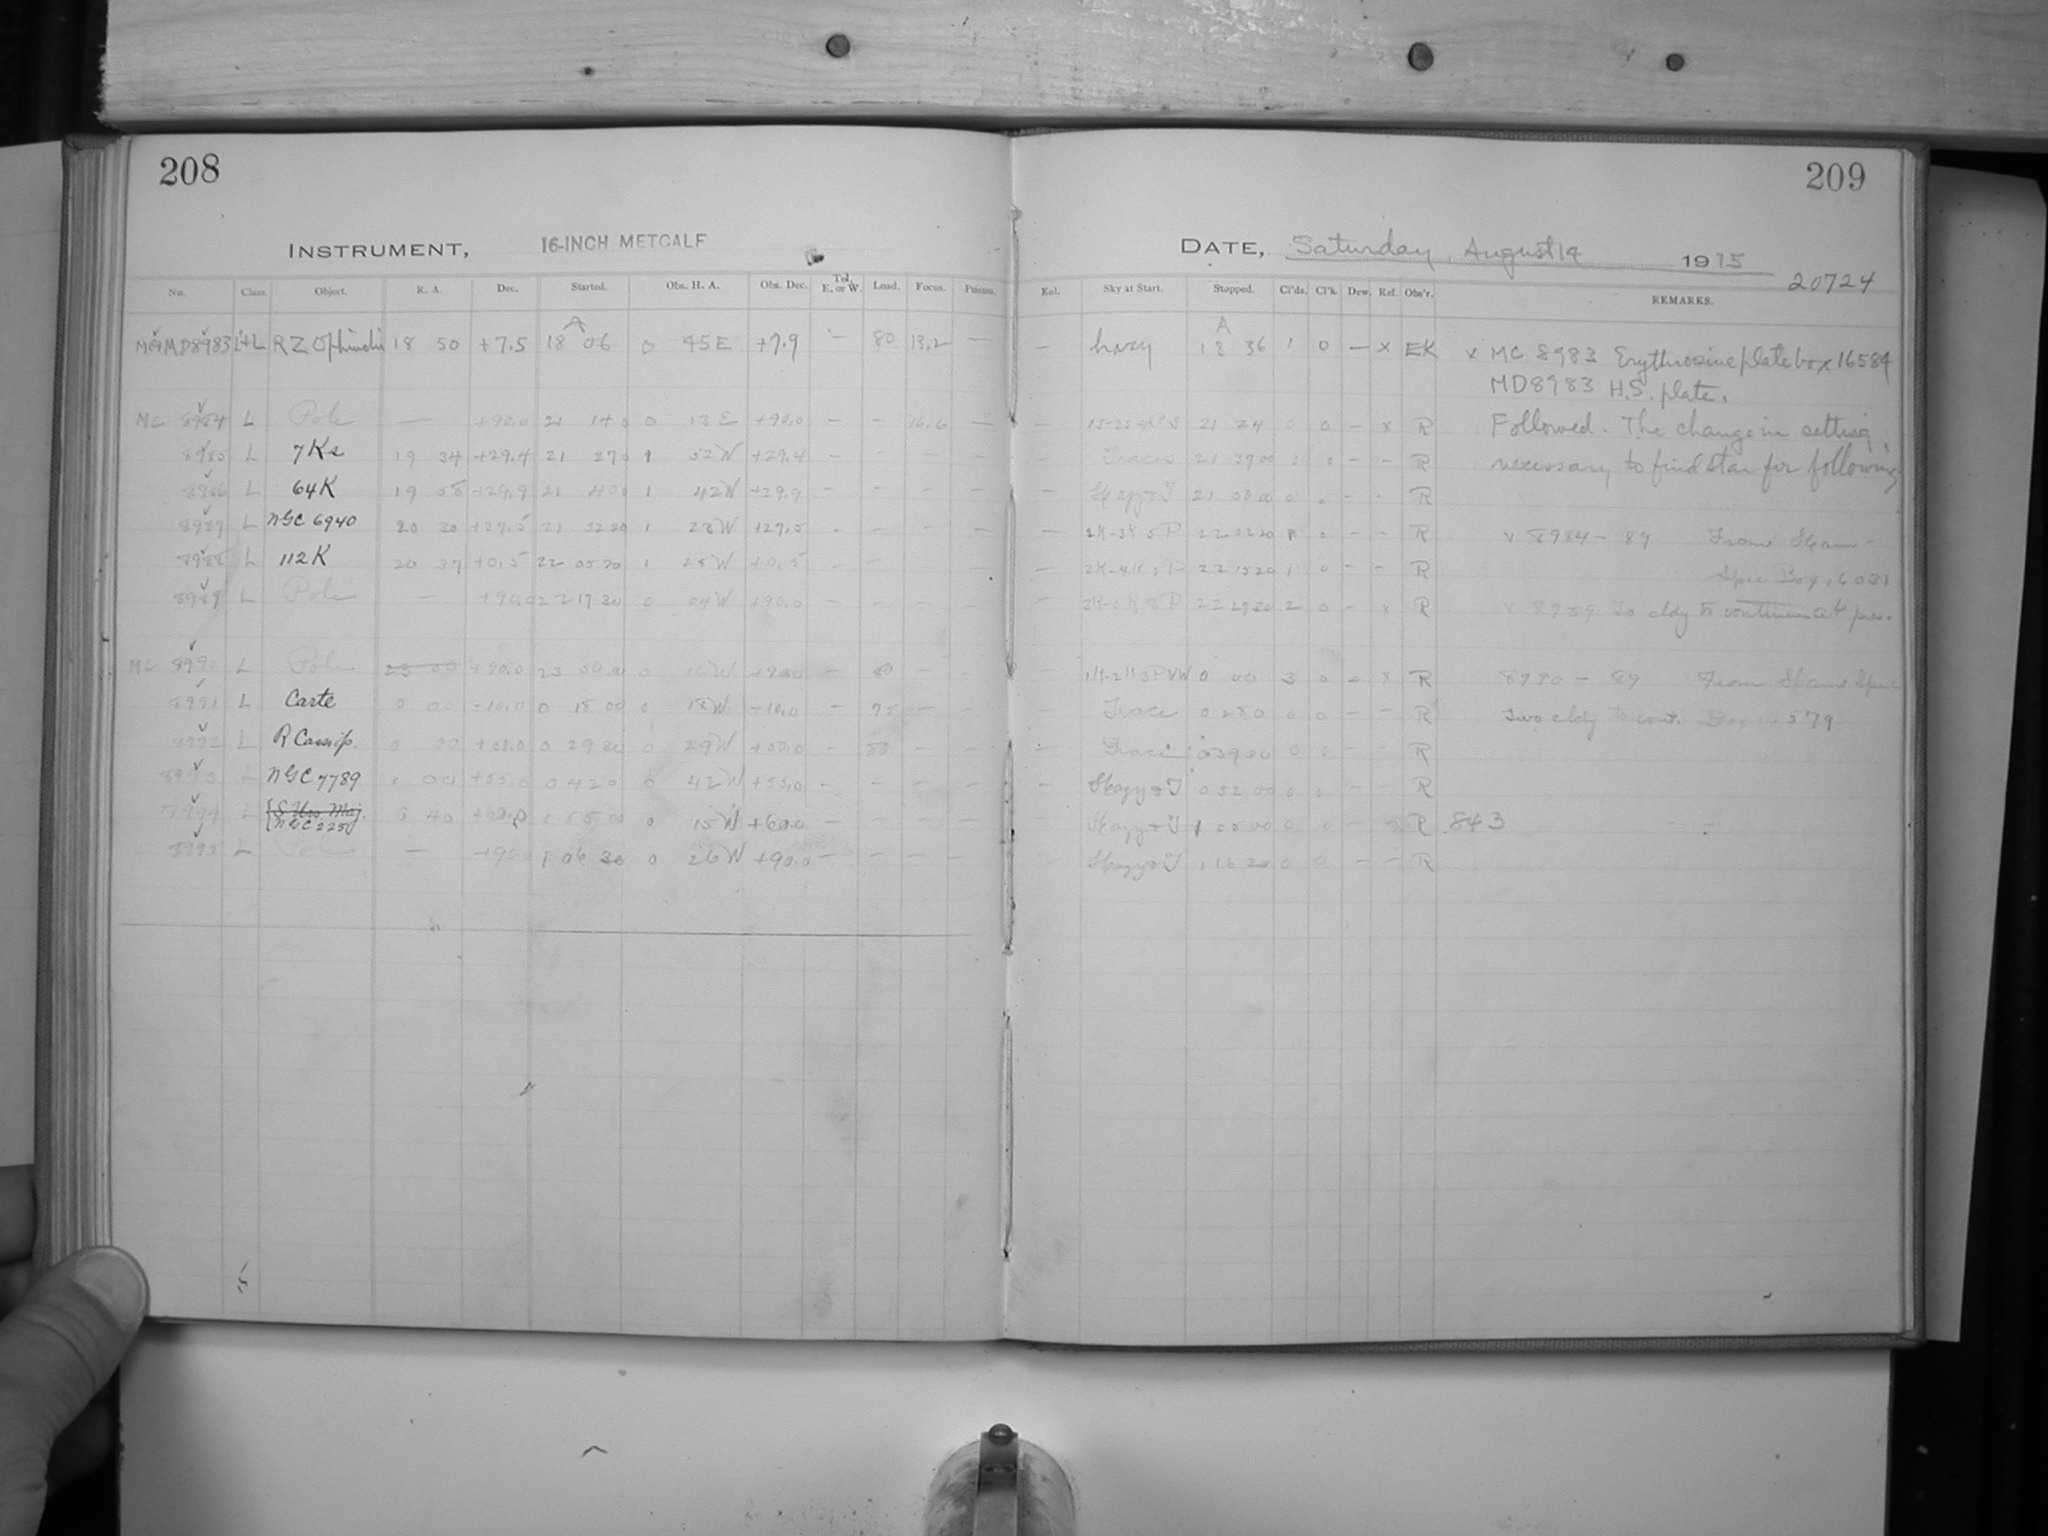 208
209
INSTRUMENT, 16-INCH METCALF
DATE, Saturday, August 14 1915
20724
No. Class. Object. R. A. Dec. Started. Obs. H. A. Obs. Dec. Tel. E. or W. Load. Focus. Prisms.
Eul. Sky at Start. Stopped. Cl'ds. Cl'k. Dew. Ref. Obs'r. REMARKS.
MC+MD8983 L+L RZ Ophiuchi 18 50 +7.5 18 06 0 45E +7.9 — 80 13.2 —
— hazy 18 36 1 0 — x EK x MC 8983 Erythrosine plate box 16584
MD8983 H.S. plate.
MC 8984 L Pole — +90.0 21 14 0 0 13 E +90.0 — — 16.6 —
21 24 0 0 – x R Followed. The change in setting
8985 L 7Ks 19 34 +29.4 21 27 0 1 52W +29.4 — —
Traces 21 37 00 0 0 – – R necessary to find star for following
8986 L 64K 19 58 +29.9 21 40 0 1 42W +29.9 — —
Hazy+T 21 50 0 R
8987 L NGC 6940 20 30 +27.5 21 52 20 1 23W +27.5 — —
22 02 20 R v 8984 – 89 From
8988 L 112K 20 37 +0.5 22 05 20 1 28W +0.5 — —
22 15 20 1 0 – – R Spec Box 16031
8989 L Pole — +90.0 22 17 30 0 04W +90.0 — —
22 27 30 2 0 – x R v 8989 To cldy to continue at pres.
MC 8990 L Pole 23 50 +90.0 23 50 00 0 16W +90.0 —
0 00 3 0 – x R 8990 – 89 From
8991 L Carte 0 00 -16.0 0 18 00 0 18W -16.0 — 75
Trace 0 28 0 0 0 – – R Two cldy to cont. Box 579
8992 L R Cassiop. 0 00 +50.0 0 29 20 0 29W +50.0 — 50
Trace 0 39 20 0 0 – – R
8993 L NGC 7789 0 00 +55.0 0 42 0 0 42W +55.0 — —
Hazy+T 0 52 00 0 0 – – R
8994 L {S Urs. Maj. 0 40 +60.0 0 55 00 0 15W +60.0 — —
NGC 225}
Hazy+T 1 05 00 0 0 – – R 843
8995 L Pole — +90.0 1 06 30 0 26W +90.0 — —
Hazy+T 1 16 30 0 0 – – R